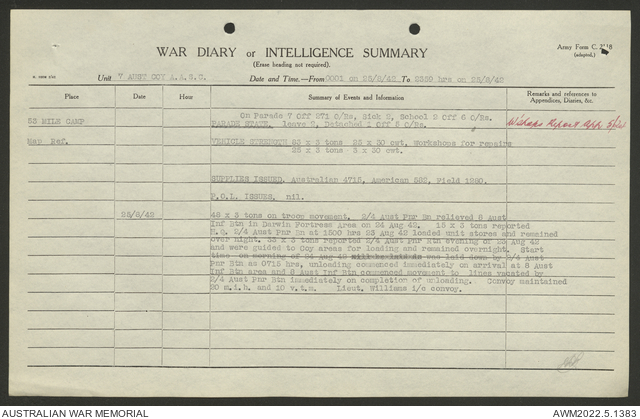 WAR DIARY or INTELLIGENCE SUMMARY
(Erase heading not required).
Army Form C.
(adapted.)
Unit 7 AUST COY A.A.S.C. Date and Time.—From 0001 on 25/8/42 To 2359 hrs on 25/8/42
Place Date Hour Summary of Events and Information Remarks and references to
Appendices, Diaries, &c.
53 MILE CAMP
On Parade 7 Off 271 O/Rs, Sick 2, School 2 Off 6 O/Rs.
PARADE STATE. leave 2, Detached 1 Off 5 O/Rs.
W'shops Report App
Map Ref.
VEHICLE STRENGTH 83 x 3 tons 25 x 30 cwt. Workshops for repairs
25 x 3 tons 3 x 30 cwt.
SUPPLIES ISSUED. Australian 4715, American 582, Field 1280.
P.O.L. ISSUES, nil.
25/8/42 48 x 3 tons on troop movement. 2/4 Aust Pnr Bn relieved 8 Aust
Inf Btn in Darwin Fortress Area on 24 Aug 42. 15 x 3 tons reported
H.Q. 2/4 Aust Pnr Bn at 1500 hrs 23 Aug 42 loaded unit stores and remained
over night. 33 x 3 tons reported 2/4 Aust Pnr Btn evening of 23 Aug 42
and were guided to Coy areas for loading and remained overnight. Start
time on morning of 24 Aug 42 will be laid do was laid down by 2/4 Aust
Pnr Btn as 0715 hrs, unloading commenced immediately on arrival at 8 Aust
Inf Btn area and 8 Aust Inf Btn commenced movement to lines vacated by
2/4 Aust Pnr Btn immediately on completion of unloading. Convoy maintained
20 m.i.h. and 10 v.t.m. Lieut. Williams i/c convoy.
AUSTRALIAN WAR MEMORIAL
AWM2022.5.1383